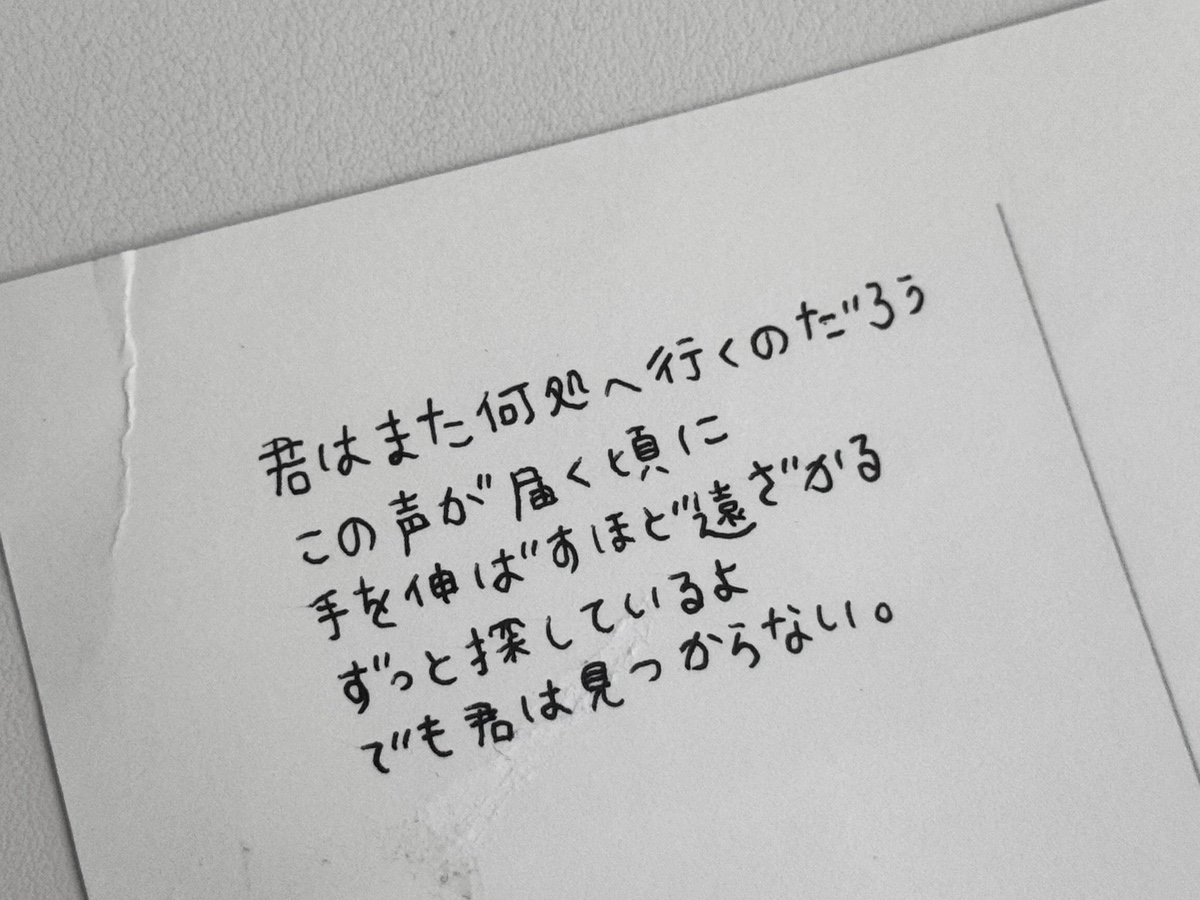 君はまた何処へ行くのだろう
この声が届く頃に
手を伸ばすほど遠ざかる
ずっと探しているよ
でも君は見つからない。